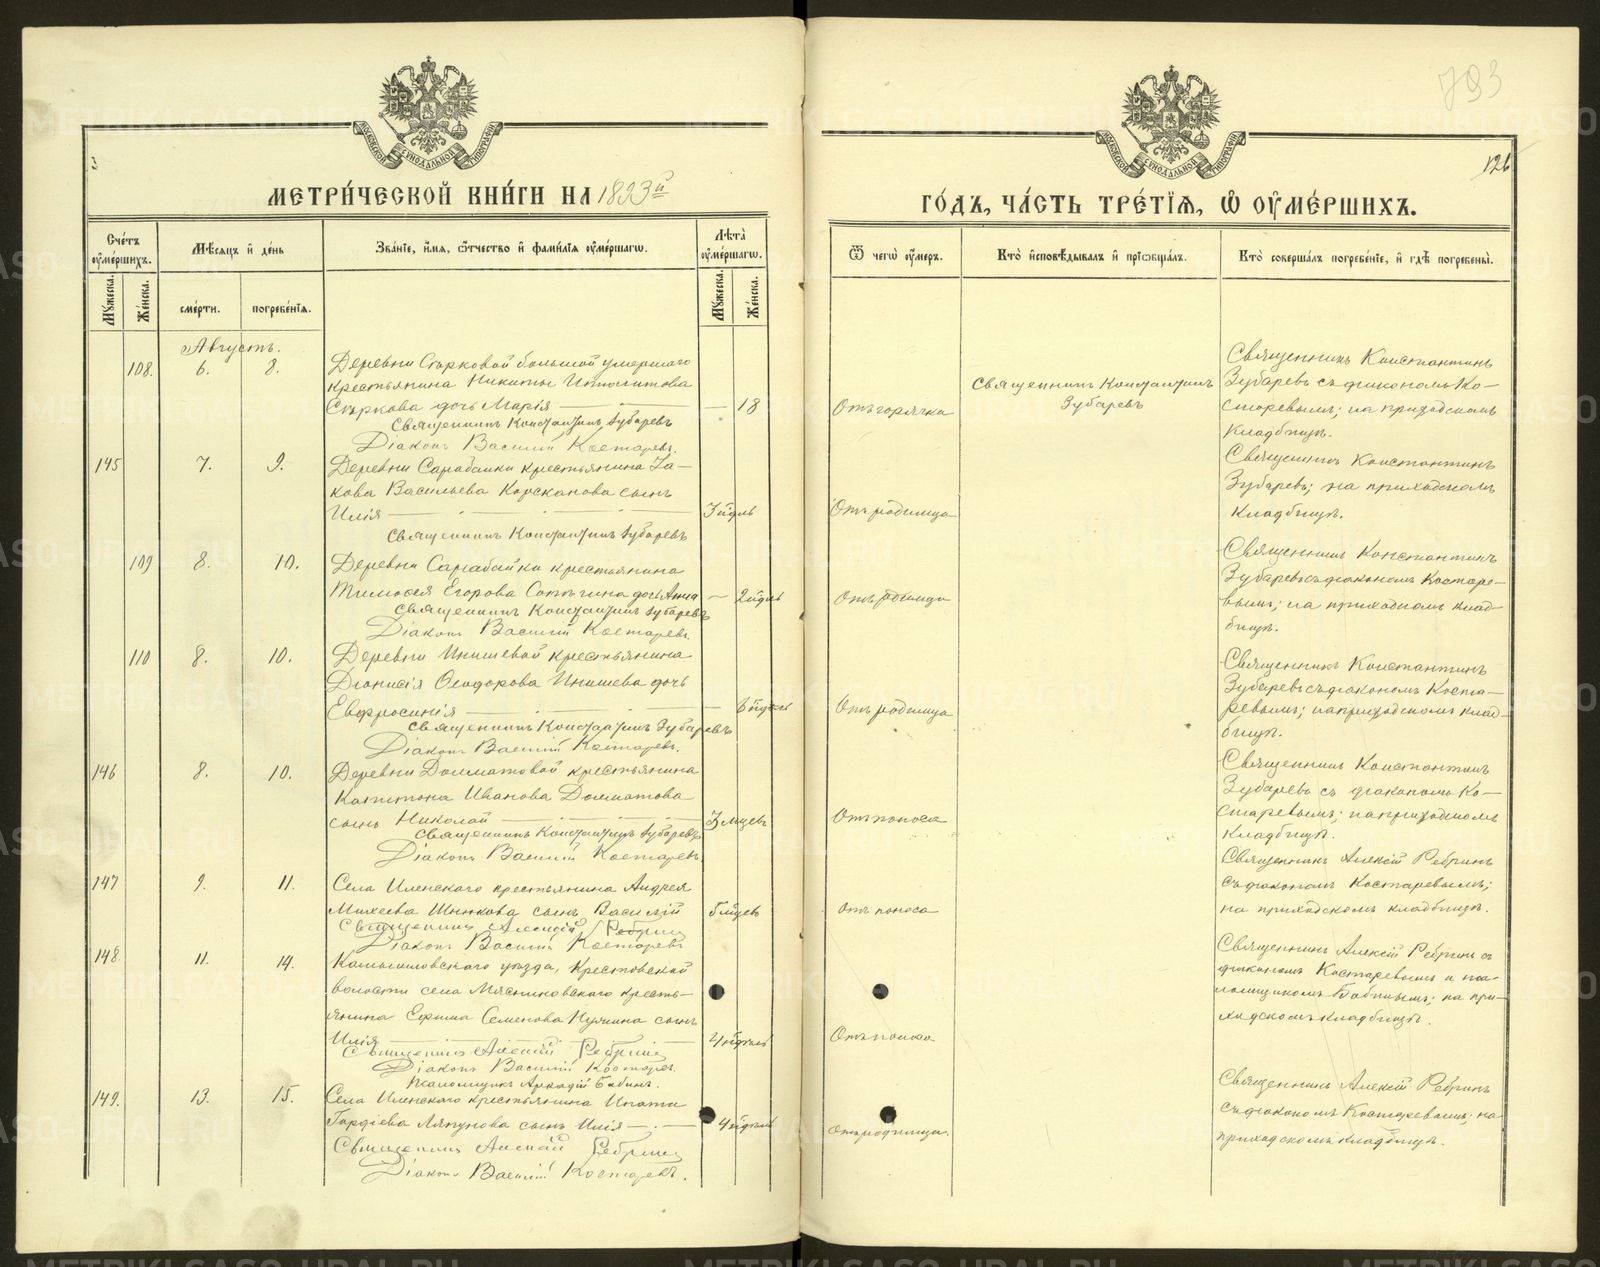 793
126
МОСКОВСКОЙ СѴНОДАЛЬНОЙ ТИПОГРАФІИ
МЕТРИ́ЧЕСКОЙ КНИ́ГИ НА 1893й
МОСКОВСКОЙ СѴНОДАЛЬНОЙ ТИПОГРАФІИ
ГО́ДЪ, ЧА́СТЬ ТРЕ́ТІЯ, Ѿ ОУМЕ́РШИХЪ.
Сче́тъ оуме́ршихъ.
Мѣ́сяцъ и де́нь
Зва́ніе, и́мя, ѻ́тчество и фами́лія оуме́ршагѡ.
Лѣ́та оуме́ршагѡ.
Ѿ чегѡ̀ оу́меръ.
Кто̀ исповѣ́дывалъ и пріѡбща́лъ.
Кто̀ соверша́лъ погребе́ніе, и гдѣ̀ погребены̀.
Му́жеска.
Же́нска.
сме́рти.
погребе́нія.
Му́жеска.
Же́нска.
Августъ.
108. 6. 8. Деревни Сырковой большой умершаго
крестьянина Никиты Ипполитова
Сыркова дочь Марія — 18
Священникъ Константинъ Зубаревъ
Діаконъ Василій Костаревъ.
Отъ горячки
Священникъ Константинъ
Зубаревъ
Священникъ Константинъ
Зубаревъ съ діакономъ Ко-
старевымъ; на приходскомъ
кладбищѣ.
145 7. 9. Деревни Сарабайки крестьянина Іа-
кова Васильева Корсканова сынъ
Илія — 3 нд‍ль
Священникъ Константинъ Зубаревъ
Отъ родимца
Священникъ Константинъ
Зубаревъ; на приходскомъ
кладбищѣ.
109 8. 10. Деревни Сарабайки крестьянина
Тимофея Егорова дочь Анна — 2
Священникъ Константинъ Зубаревъ
Діаконъ Василій Костаревъ.
Отъ родимца
Священникъ Константинъ
Зубаревъ съ діакономъ Костаре-
вымъ; на приходскомъ клад-
бищѣ.
110 8. 10. Деревни Инишевой крестьянина
Діонисія Ѳеодорова Инишева дочь
Евфросинія — 6
Священникъ Константинъ Зубаревъ
Діаконъ Василій Костаревъ.
Отъ родимца
Священникъ Константинъ
Зубаревъ съ діакономъ Коста-
ревымъ; на приходскомъ клад-
бищѣ.
146 8. 10. Деревни Долматовой крестьянина
Капитона Иванова Долматова
сынъ Николай — 3 мцевъ
Священникъ Константинъ Зубаревъ
Діаконъ Василій Костаревъ.
Отъ поноса
Священникъ Константинъ
Зубаревъ съ діакономъ Ко-
старевымъ; на приходскомъ
кладбищѣ.
147 9. 11. Села Иленскаго крестьянина Андрея
Михеева сынъ Василій 5 мцевъ
Священникъ Алексій Ребринъ
Діаконъ Василій Костаревъ
Отъ поноса
Священникъ Алексій Ребринъ
съ діакономъ Костаревымъ;
на приходскомъ кладбищѣ.
148 11. 14. Камышловскаго уѣзда, Крестовской
волости села Мясниковскаго кресть-
янина Ефима Семенова сынъ
Илія — 4
Священникъ Алексій Ребринъ
Діаконъ Василій Костаревъ.
Псаломщикъ Аркадій Бабинъ.
Отъ поноса
Священникъ Алексій Ребринъ съ
діакономъ Костаревымъ и пса-
ломщикомъ Бабинымъ; на при-
ходскомъ кладбищѣ.
149. 13. 15. Села Иленскаго крестьянина Ипата
Гордіева Ляпунова сынъ Илія — 4
Священникъ Алексій Ребринъ
Діаконъ Василій Костаревъ.
Отъ родимца.
Священникъ Алексій Ребринъ
съ діакономъ Костаревымъ; на
приходскомъ кладбищѣ.
METRIKI.GASO-URAL.RU